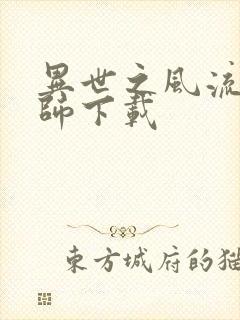 異世之風流
師下載
東方城府的